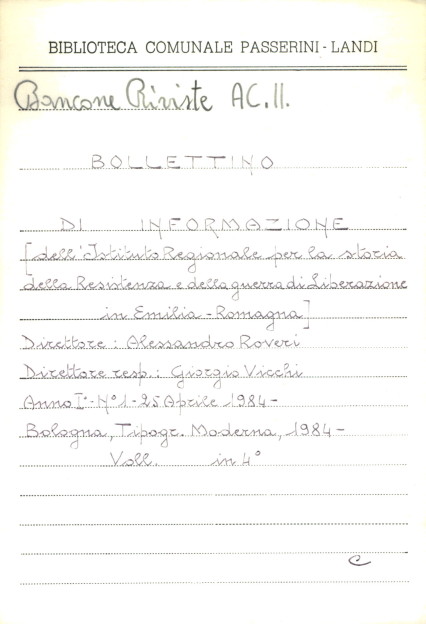 BIBLIOTECA COMUNALE PASSERINI - LANDI
Bancone Riviste AC. 11.
BOLLETTINO
DI INFORMAZIONE
[dell'Istituto Regionale per la storia
della Resistenza e della guerra di Liberazione
in Emilia - Romagna]
Direttore : Alessandro Roveri
Direttore resp. : Giorgio Vicchi
Anno I° - N° 1 - 25 Aprile 1984 -
Bologna, Tipogr. Moderna, 1984 -
Voll. in 4°
C